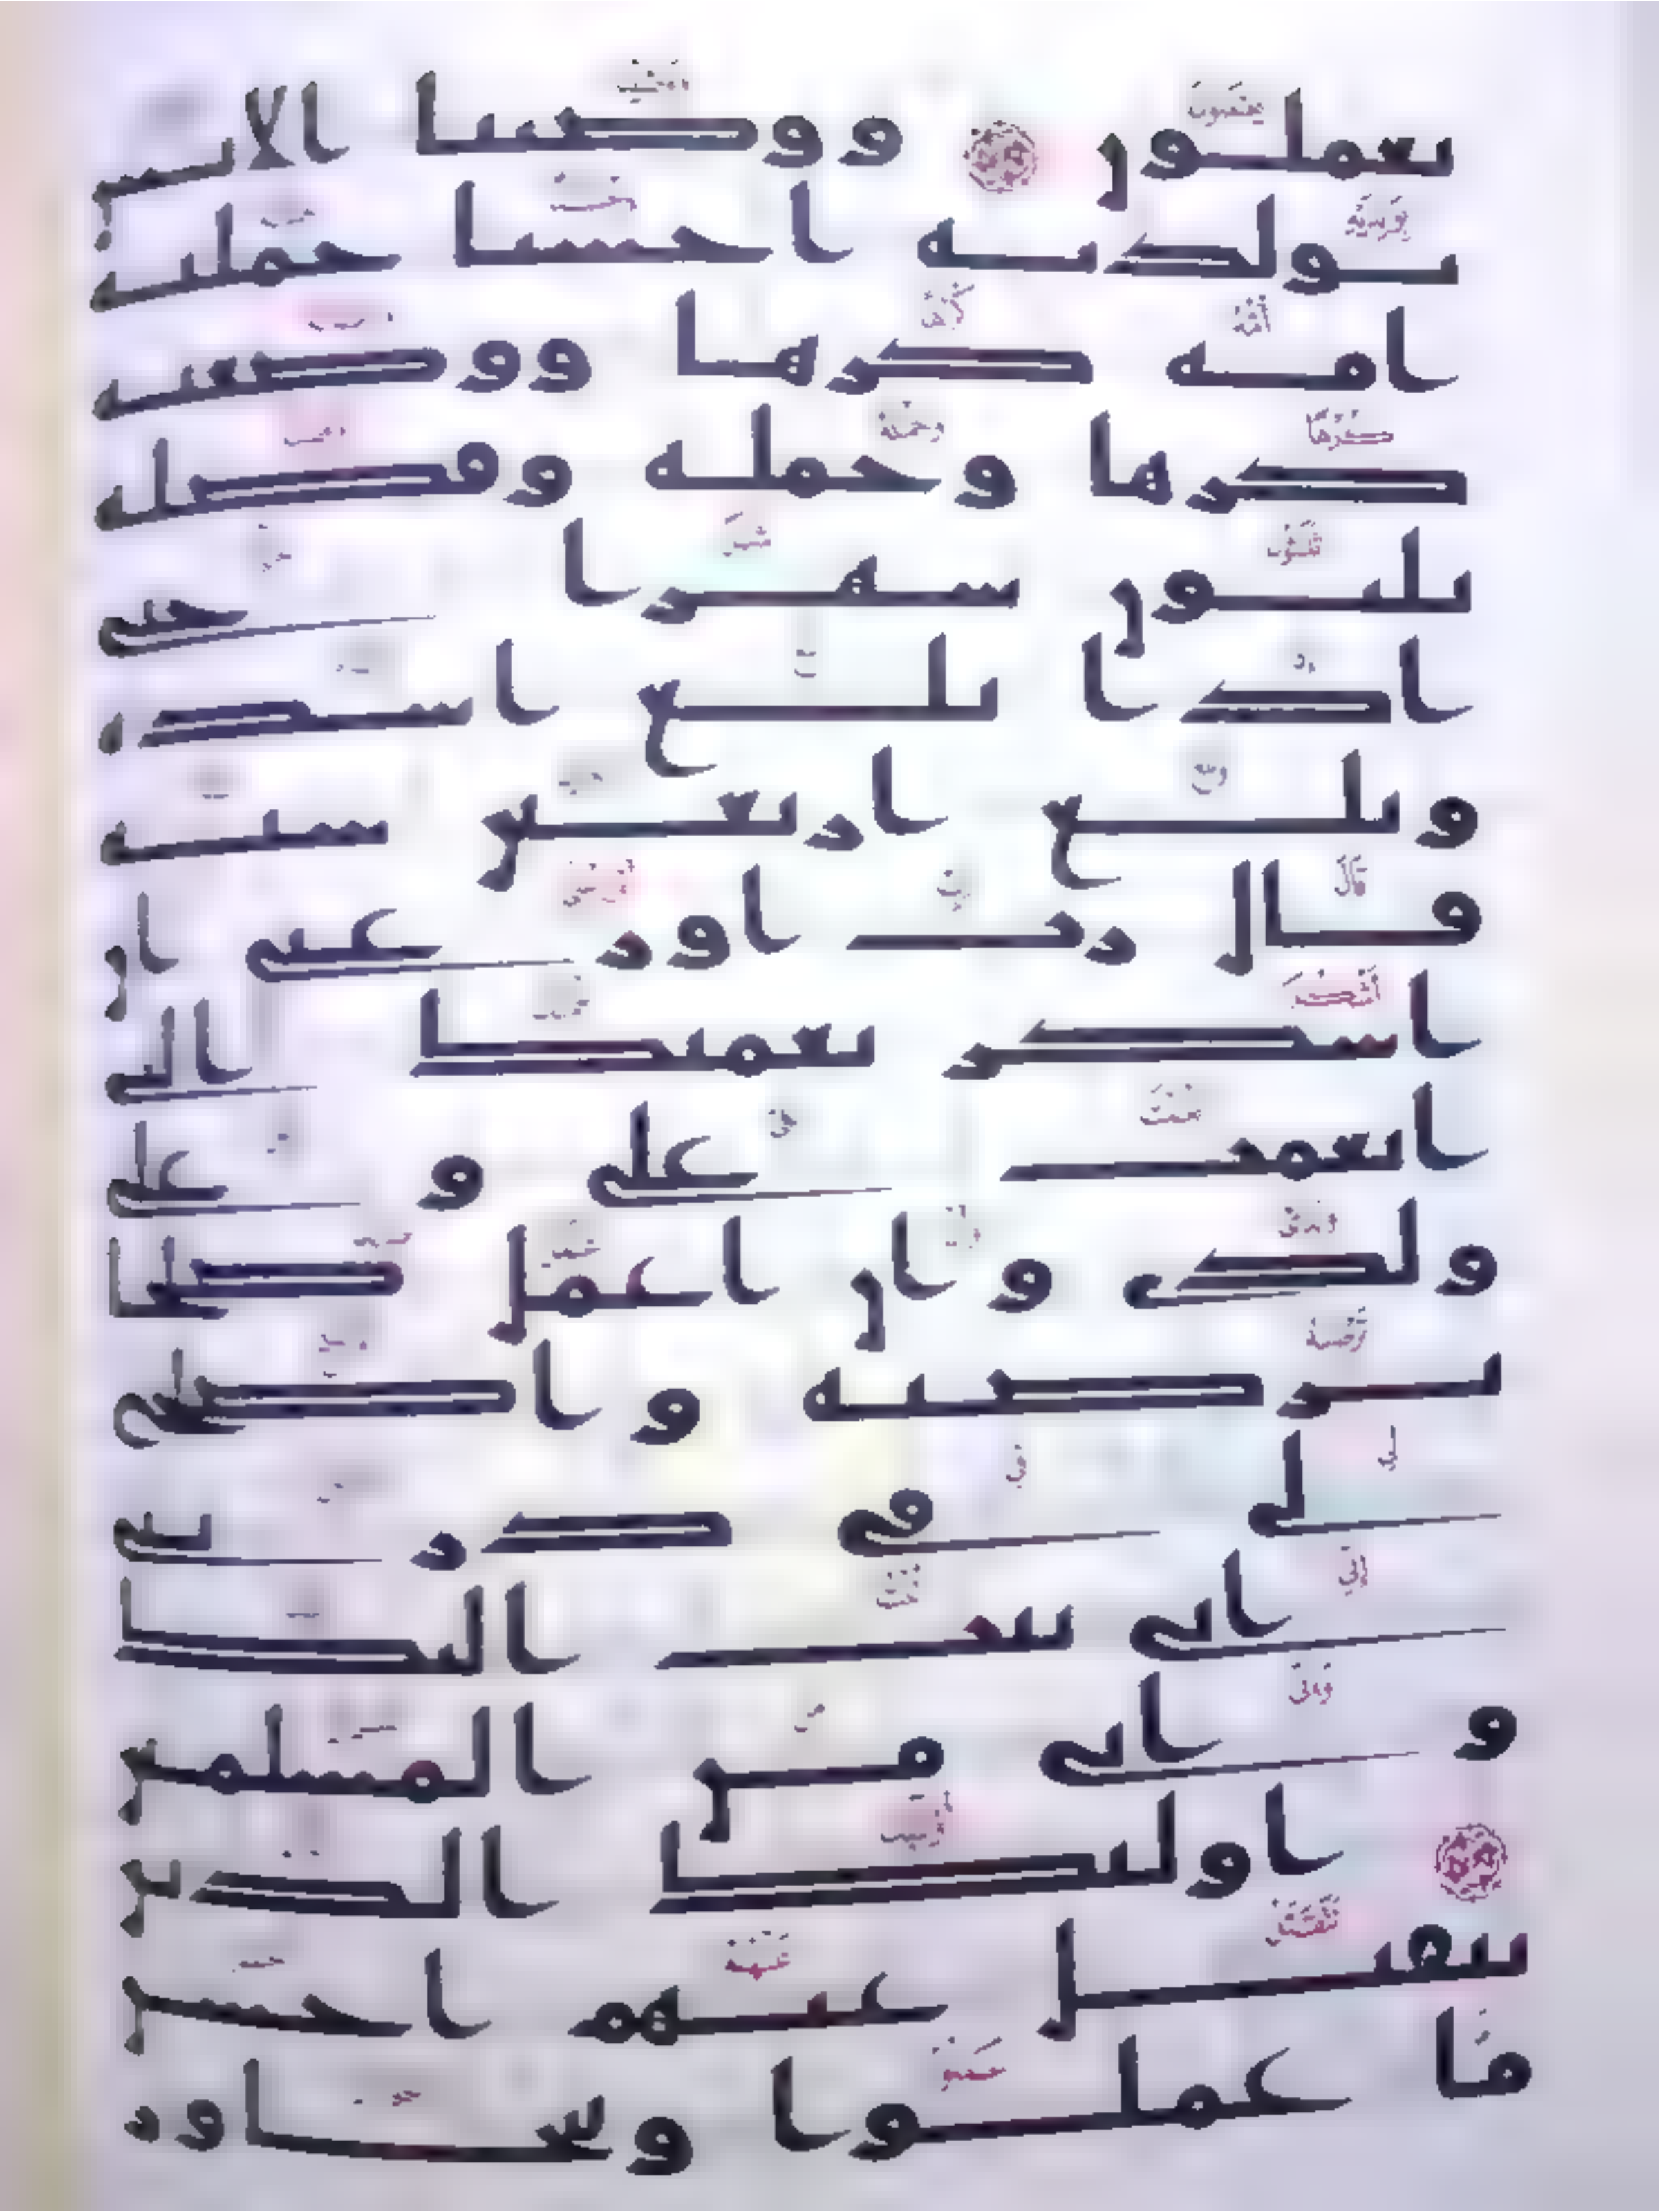 يعملون ووصينا الانسن
بولديه احسنا حملته
امه كرها ووضعته
كرها وحمله وفصله
ثلثون شهرا حتى
اذا بلغ اشده
وبلغ اربعين سنه
قال رب اوزعنى ان
اشكر نعمتك التى
انعمت على و على
ولدى وان اعمل صلحا
ترضيه واصلح
لى فى ذريتى
انى تبت اليك
و انى من المسلمين
اولئك الذين
نتقبل عنهم احسن
ما عملوا ونتجاوز